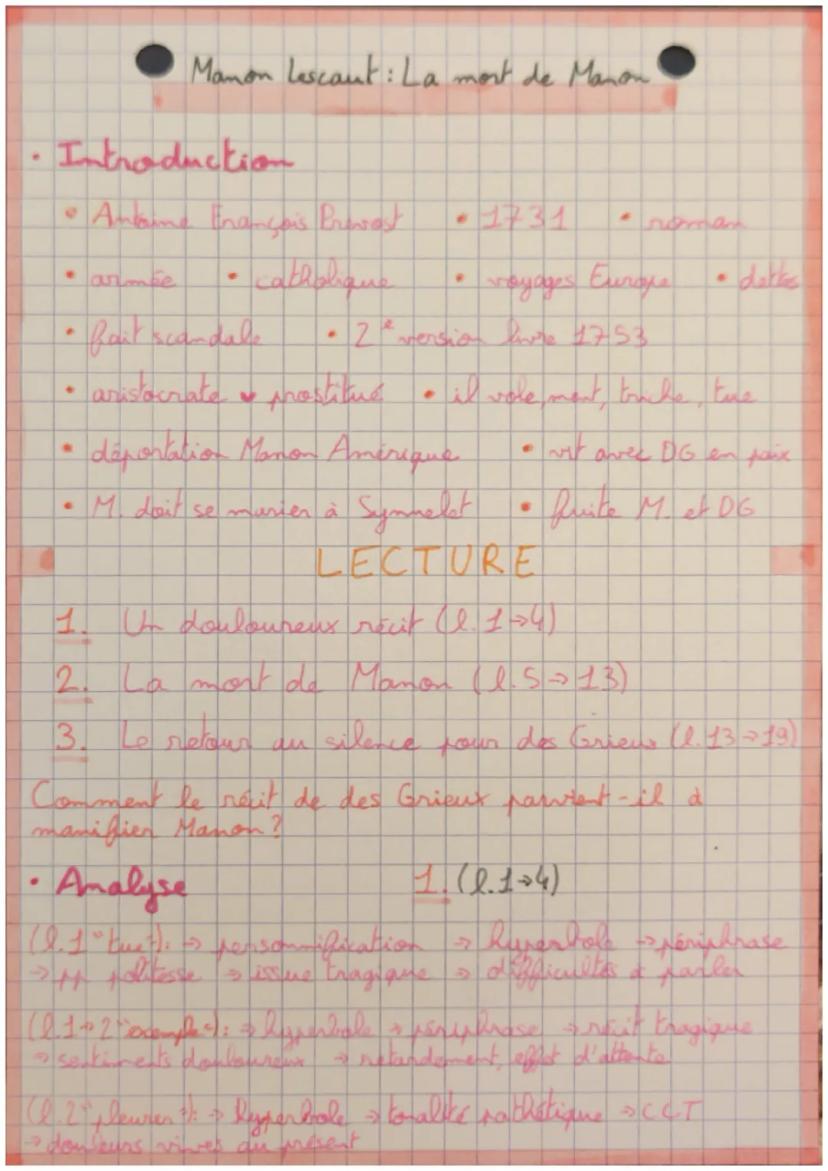 Manon Lescaut : La mort de Manon
• Introduction
• Antoine François Prévost • 1731 • roman
• armée • catholique • voyages Europe • dettes
• fait scandale • 2e version livre 1753
• aristocrate ♥ prostitué • il vole, ment, triche, tue
• déportation Manon Amérique • vit avec DG en paix
• M. doit se marier à Synnelet • fuite M. et DG
LECTURE
1. Un douloureux récit (l.1→4)
2. La mort de Manon (l.5→13)
3. Le retour au silence pour des Grieux (l.13→19)
Comment le récit de des Grieux parvient-il à
manifier Manon ?
• Analyse 1. (l.1→4)
(l.1 "tue") : → personnification → hyperbole → périphrase
→ pp politesse → issue tragique → difficultés à parler
(l.1→2 "exemple") : → hyperbole → périphrase → récit tragique
→ sentiments douloureux → retardement, effet d'attente
(l.2 "pleurer") : → hyperbole → tonalité pathétique → CCT
→ douleurs vives au présent